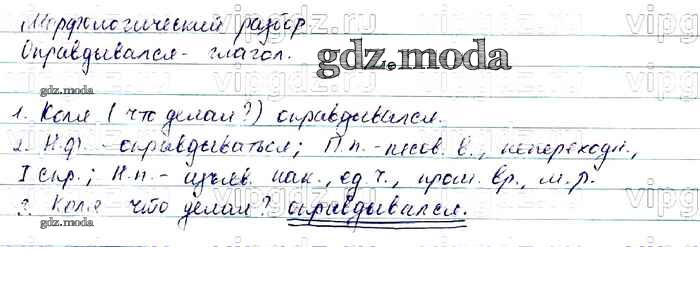 Морфологический разбор.
Оправдывался - глагол.
gdz.moda
gdz.moda
1. Коля (что делал?) оправдывался.
2. Н.ф. - оправдываться; П.п. - несов. в., непереходн.,
I спр.; Н.п. - изъяв. нак., ед. ч., прош. вр., м. р.
3. Коля что делал? оправдывался.
gdz.moda
gdz.moda